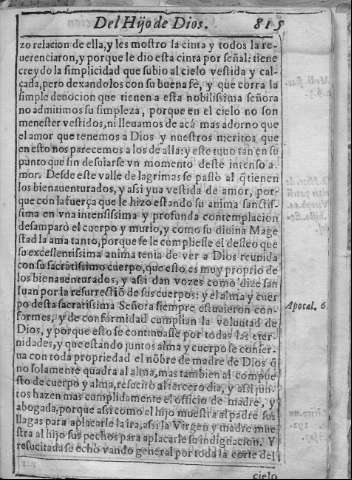 Del Hijo de Dios. 815
zo relacion de ella, y les mostro la cinta y todos la re-
uerenciaron, y porque le dio esta cinta por señal: tiene
creydo la simplicidad que subio al cielo vestida y cal-
çada, pero dexandolos con su buena fè, y que corra la
simple deuocion que tienen a esta nobilissima señora
no admitimos su simpleza, porque en el cielo no son
menester vestidos, ni lleuamos de acà mas adorno que
el amor que tenemos a Dios y nuestros meritos que
en esto nos parecemos a los de alla: y este tuuo tan en su
punto que sin desasirse vn momento deste intenso a-
mor. Desde este valle de lagrimas se passò al q̃ tienen
los bienauenturados, y assi yua vestida de amor, por-
que con la fuerça que le hizo estando su anima sanctis-
sima en vna intensissima y profunda contemplacion
desamparò el cuerpo y murio, y como su diuina Mage
stad la ama tanto, porque se le compliesse el desseo que
su excelentissima anima tenia de ver a Dios reunida
con su sacratissimo cuerpo, que esto es muy proprio de
los bienauenturados, y assi dan vozes como dize san
Iuan por la resurrectiõ de sus cuerpos: y el alma y cuer
po desta sacratissima Señora siempre estuuieron con-
formes, y de conformidad cumplian la voluntad de
Dios, y porque esto se continuasse por todas las eter-
nidades, y que estando juntos alma y cuerpo se conser-
ua con toda propriedad el nõbre de madre de Dios q̃
no solamente quadra al alma, mas tambien al compue
sto de cuerpo y alma, resucitò al tercero dia, y assi jun-
tos hazen mas cumplidamente el officio de madre, y
abogada, porque assi como el hijo muestra al padre sus
llagas para aplacarle la ira, assi la Virgen y madre mue
stra al hijo sus pechos para aplacarle su indignacion. Y
resucitada se echò vando general por toda la corte del
cielo
Apocal. 6.